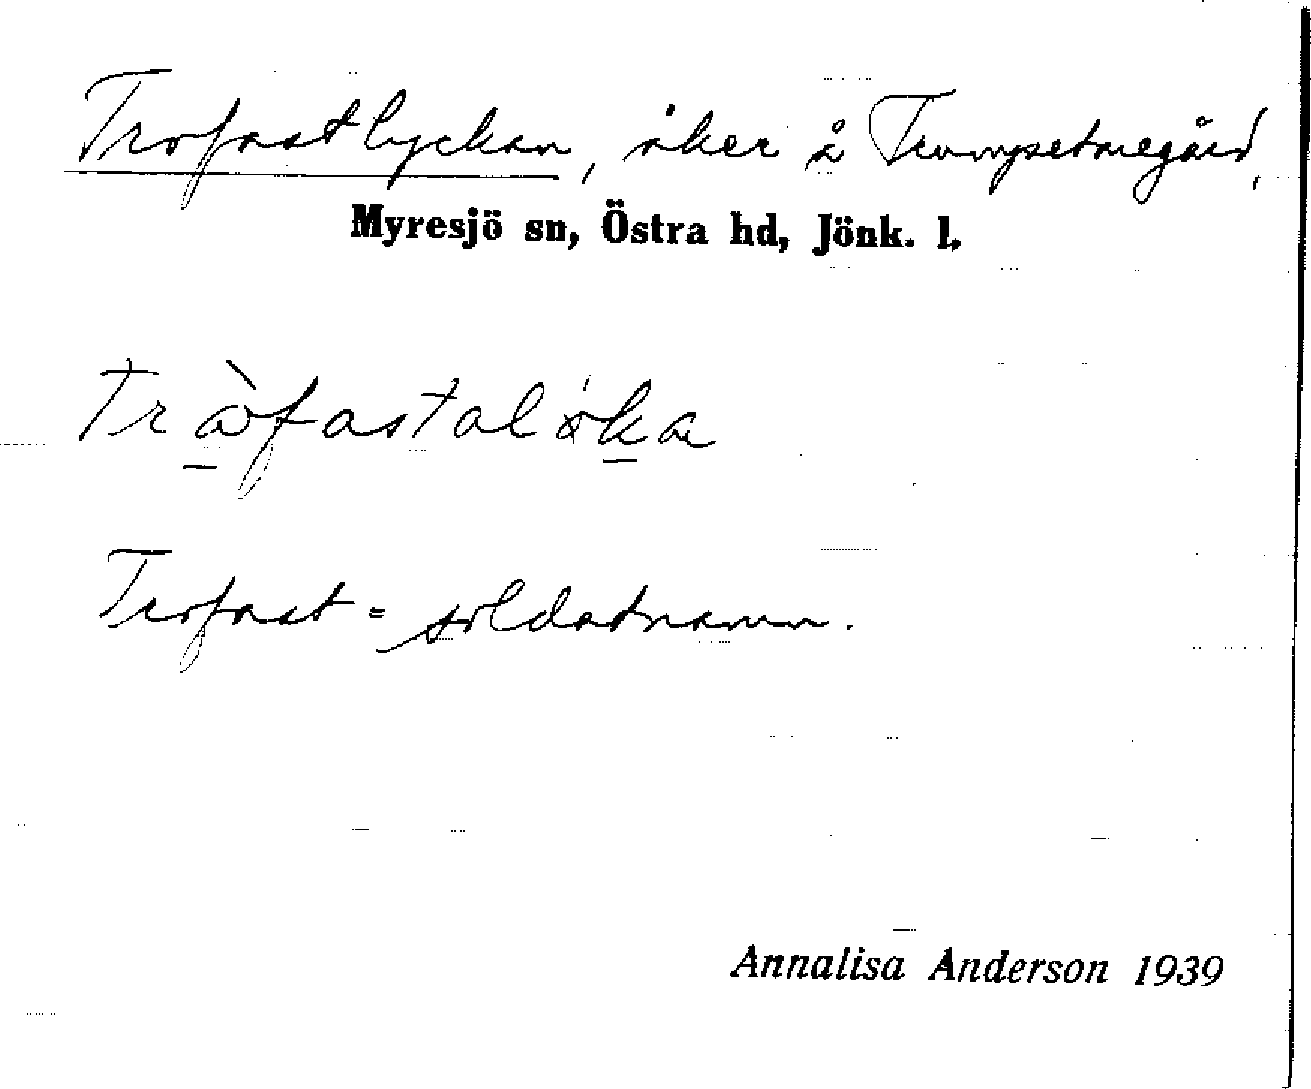 Trofastlyckan, åker å Trumpetaregård,
Myresjö sn, Östra hd, Jönk. l.
Tròfastalöka
Trofast = soldatnamn.
Annalisa Anderson 1939